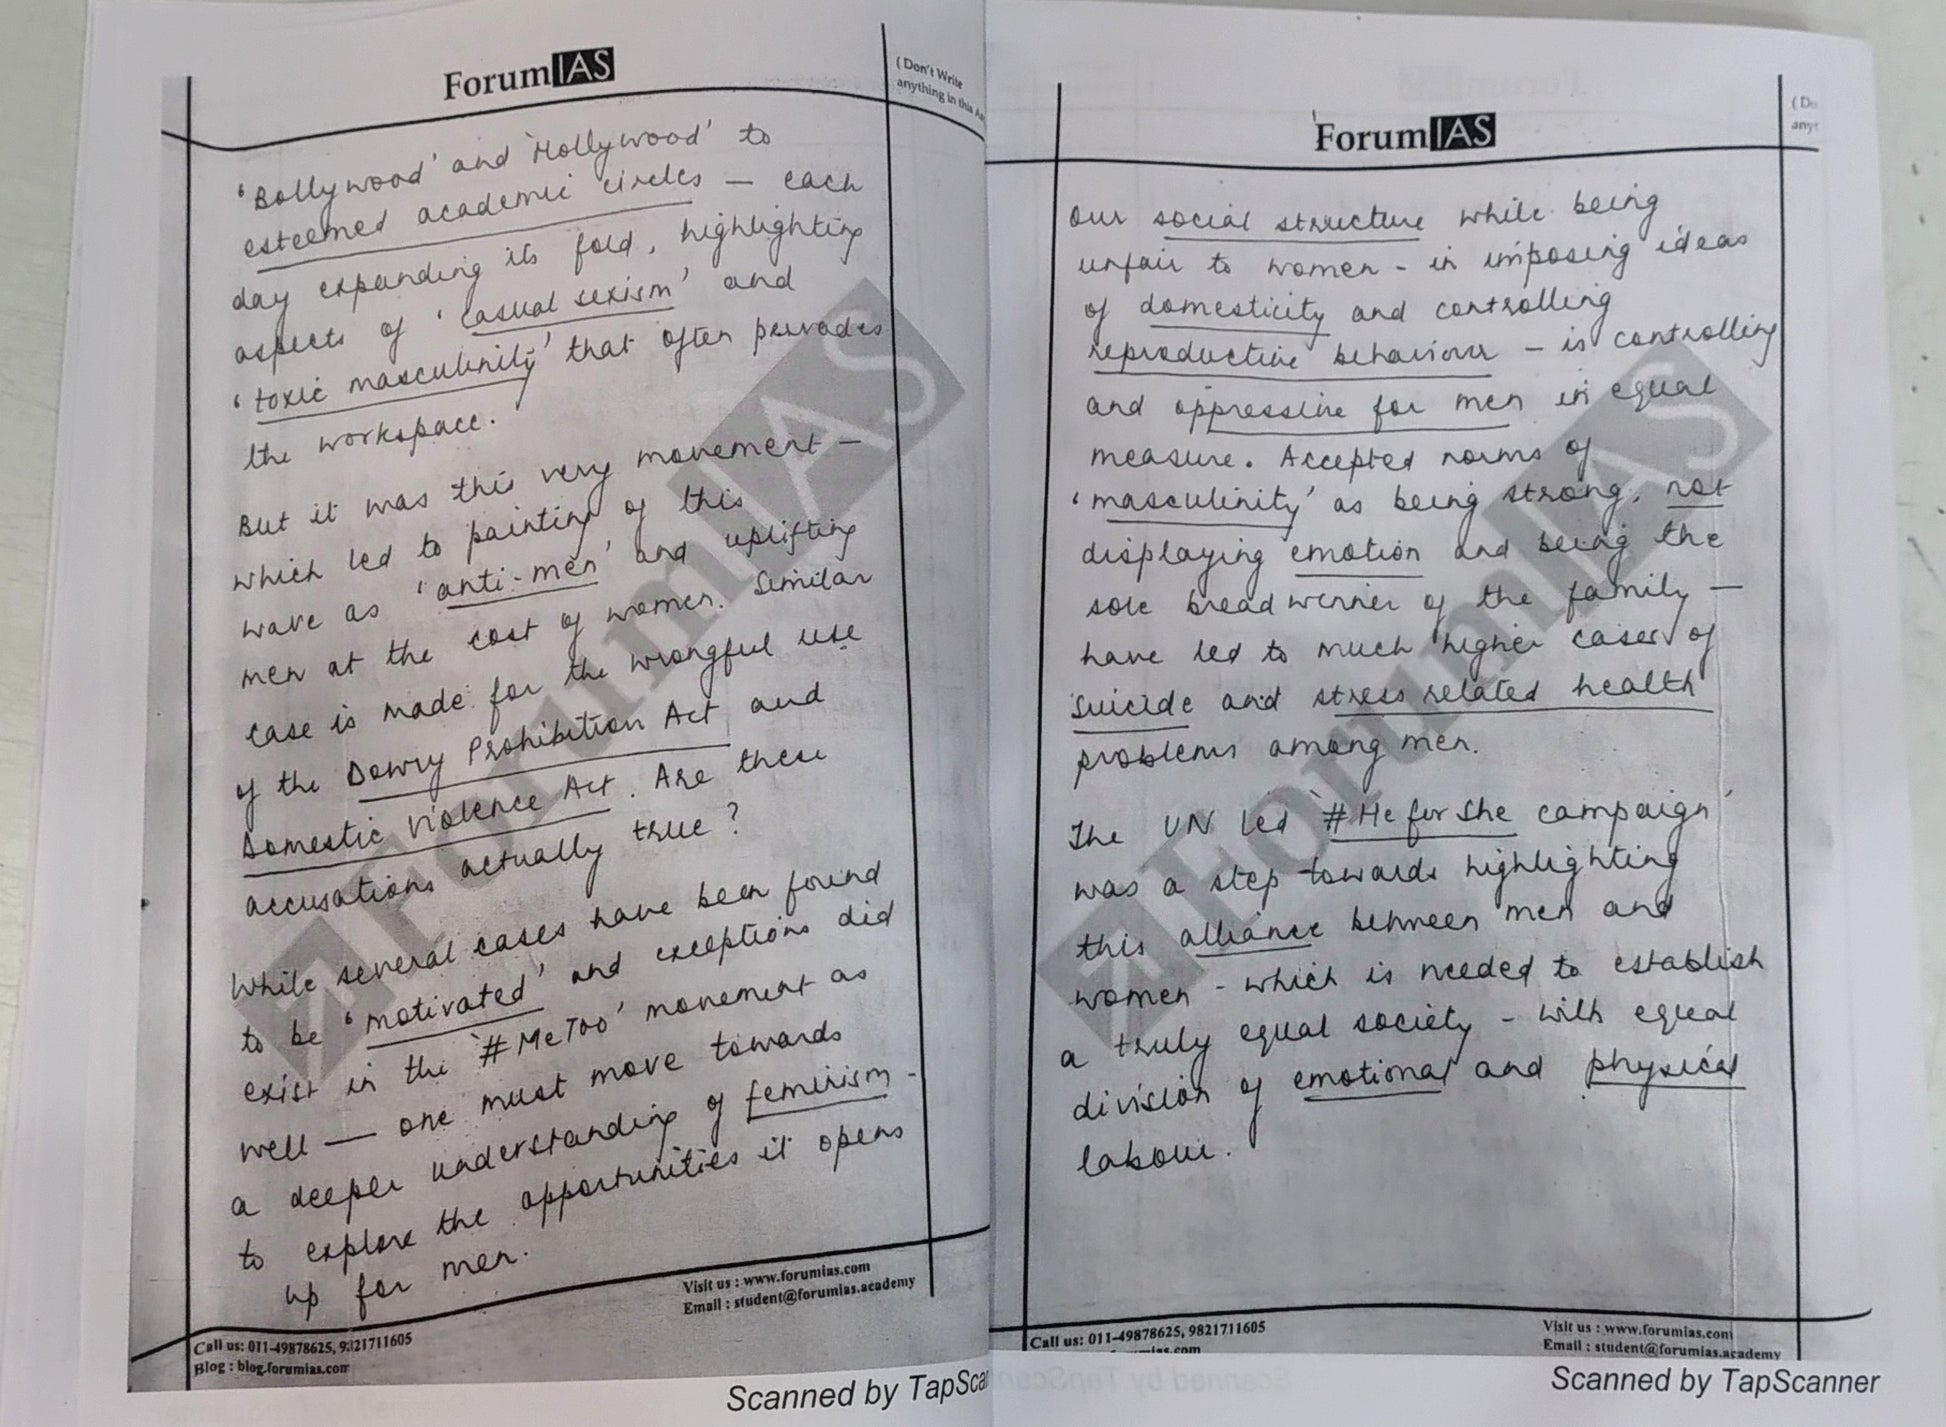 ForumIAS
( Don't Write
anything in this
'Bollywood' and 'Hollywood' to
esteemed academic circles — each
day expanding its fold, highlighting
aspects of 'casual sexism' and
'toxic masculinity' that often pervades
the workspace.
But it was this very movement —
which led to painting of this
wave as 'anti-men' and uplifting
men at the cost of women. Similar
case is made for the wrongful use
of the Dowry Prohibition Act and
Domestic Violence Act. Are these
accusations actually true?
While several cases have been found
to be 'motivated' and exceptions did
exist in the '#MeToo' movement as
well — one must move towards
a deeper understanding of feminism -
to explore the opportunities it opens
up for men.
Visit us : www.forumias.com
Email : student@forumias.academy
Call us: 011-49878625, 9821711605
Blog : blog.forumias.com
Scanned by TapSca
ForumIAS
( Do
anyt
Our social structure while being
unfair to women - in imposing ideas
of domesticity and controlling
reproductive behaviour - is controlling
and oppressive for men in equal
measure. Accepted norms of
'masculinity' as being strong, not
displaying emotion and being the
sole breadwinner of the family —
have led to much higher cases of
suicide and stress related health
problems among men.
The UN led '#HeforShe campaign'
was a step towards highlighting
this alliance between men and
women - which is needed to establish
a truly equal society - with equal
division of emotional and physical
labour.
Call us: 011-49878625, 9821711605
Visit us : www.forumias.com
Email : student@forumias.academy
Scanned by TapScanner
ForumIAS
ForumIAS